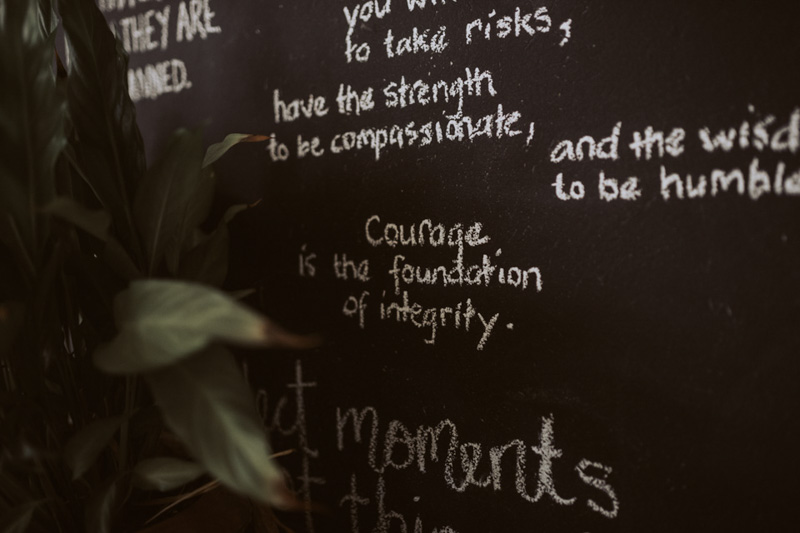 THEY ARE
you
to take risks,
have the strength
to be compassionate,
and the
to be
Courage
is the foundation
of integrity.
moments